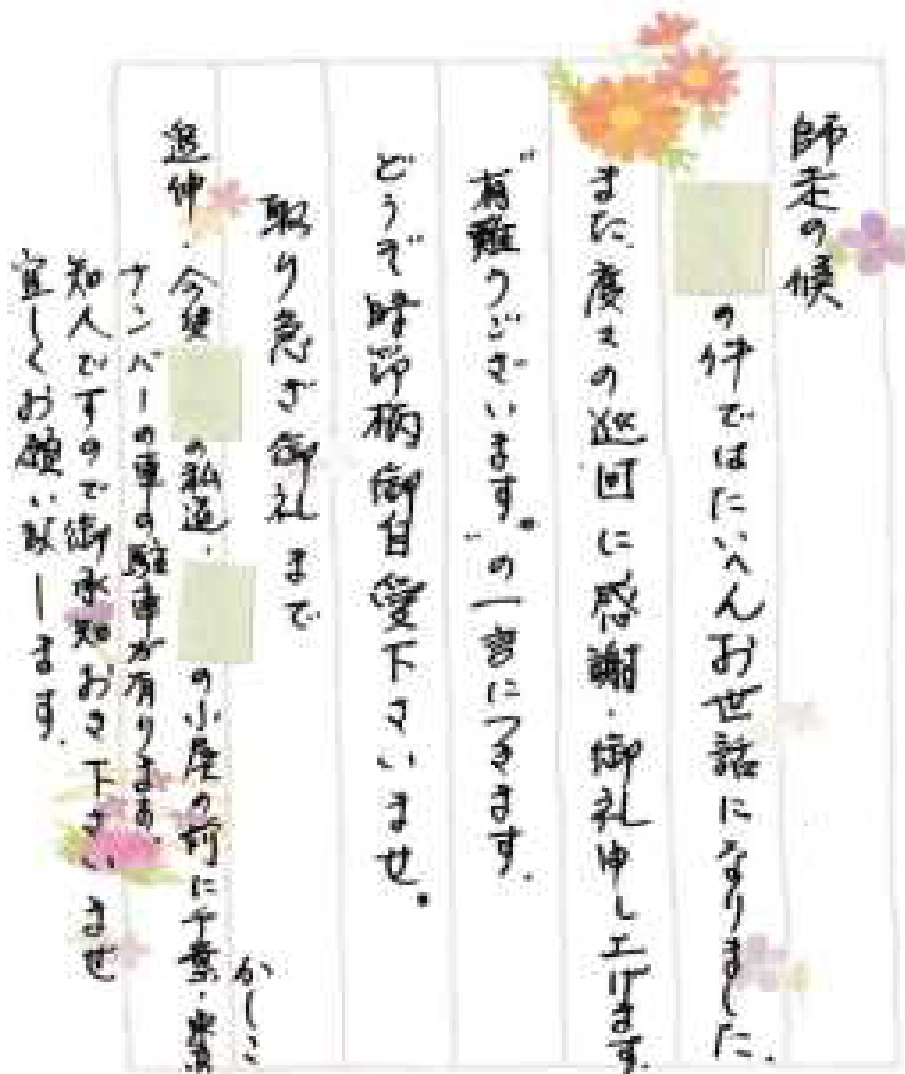 師走の候
の件ではたいへんお世話になりました.
また、度々の巡回に感謝・御礼申し上げます.
"有難うございます。"の一言につきます.
どうぞ時節柄御自愛下さいませ.
取り急ぎ御礼まで
かしこ
追伸.今徒 の私道、 の小屋の前に千葉・
ナンバーの車の駐車が有ります.
知人ですので御承知おき下さいませ
宜しくお願い致します.